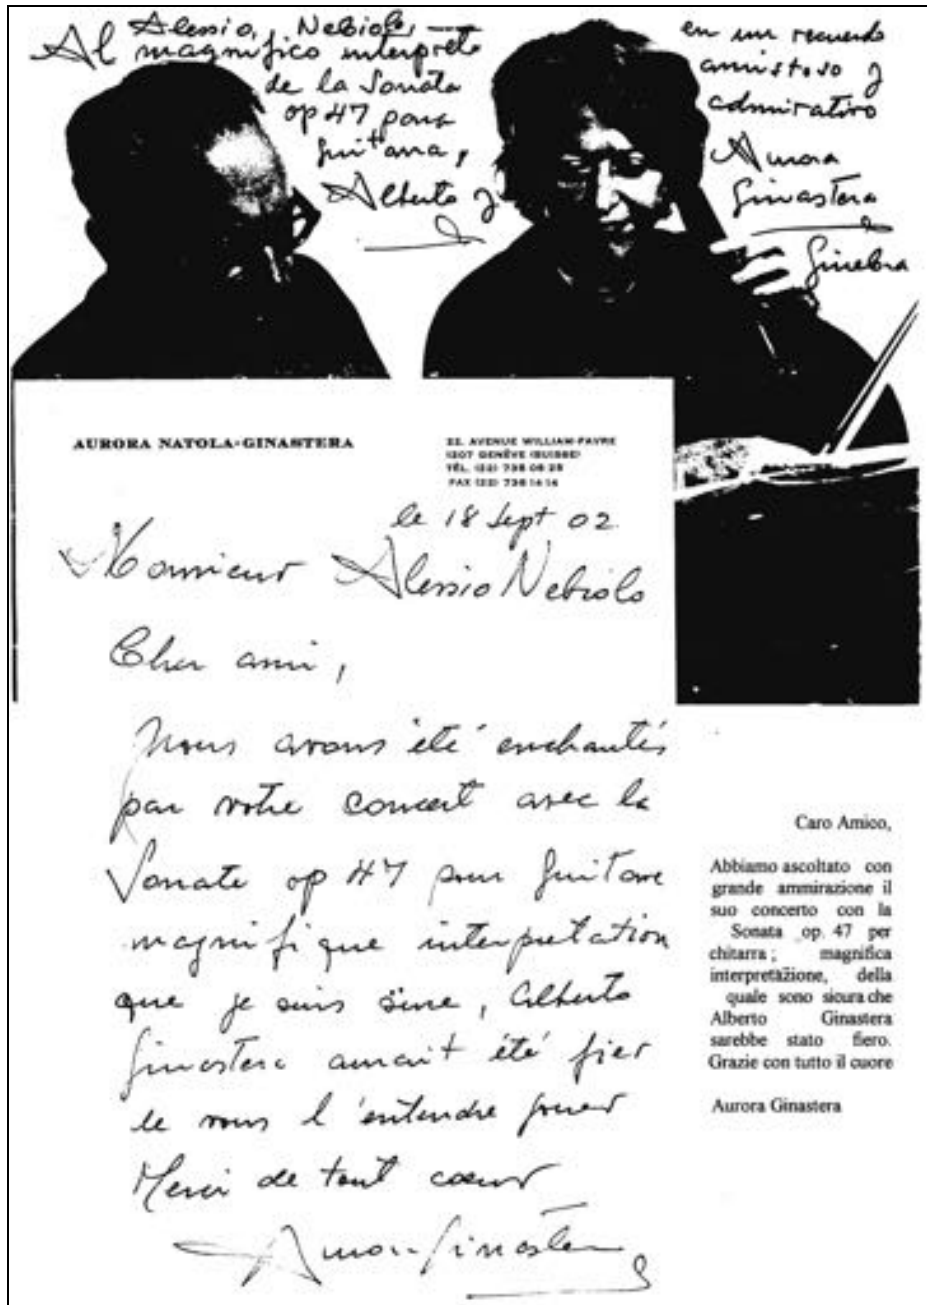 Al Alessio Nebiolo,
magnifico interprete
de la Sonata
op 47 para
guitarra,
Alberto y
en un recuerdo
amistoso y
admirativo
Aurora
Ginastera
Ginebra
AURORA NATOLA-GINASTERA
22, AVENUE WILLIAM-FAVRE
1207 GENÈVE (SUISSE)
TÉL. (22) 736 08 28
FAX (22) 736 14 14
le 18 Sept 02
Monsieur Alessio Nebiolo
Cher ami,
Nous avons été enchantés
par votre concert avec la
Sonate op 47 pour guitare
magnifique interpretation
que je suis sûre, Alberto
Ginastera aurait été fier
de vous l'entendre jouer
Merci de tout coeur
Aurora Ginastera
Caro Amico,
Abbiamo ascoltato con
grande ammirazione il
suo concerto con la
Sonata op. 47 per
chitarra ; magnifica
interpretazione, della
quale sono sicura che
Alberto Ginastera
sarebbe stato fiero.
Grazie con tutto il cuore
Aurora Ginastera